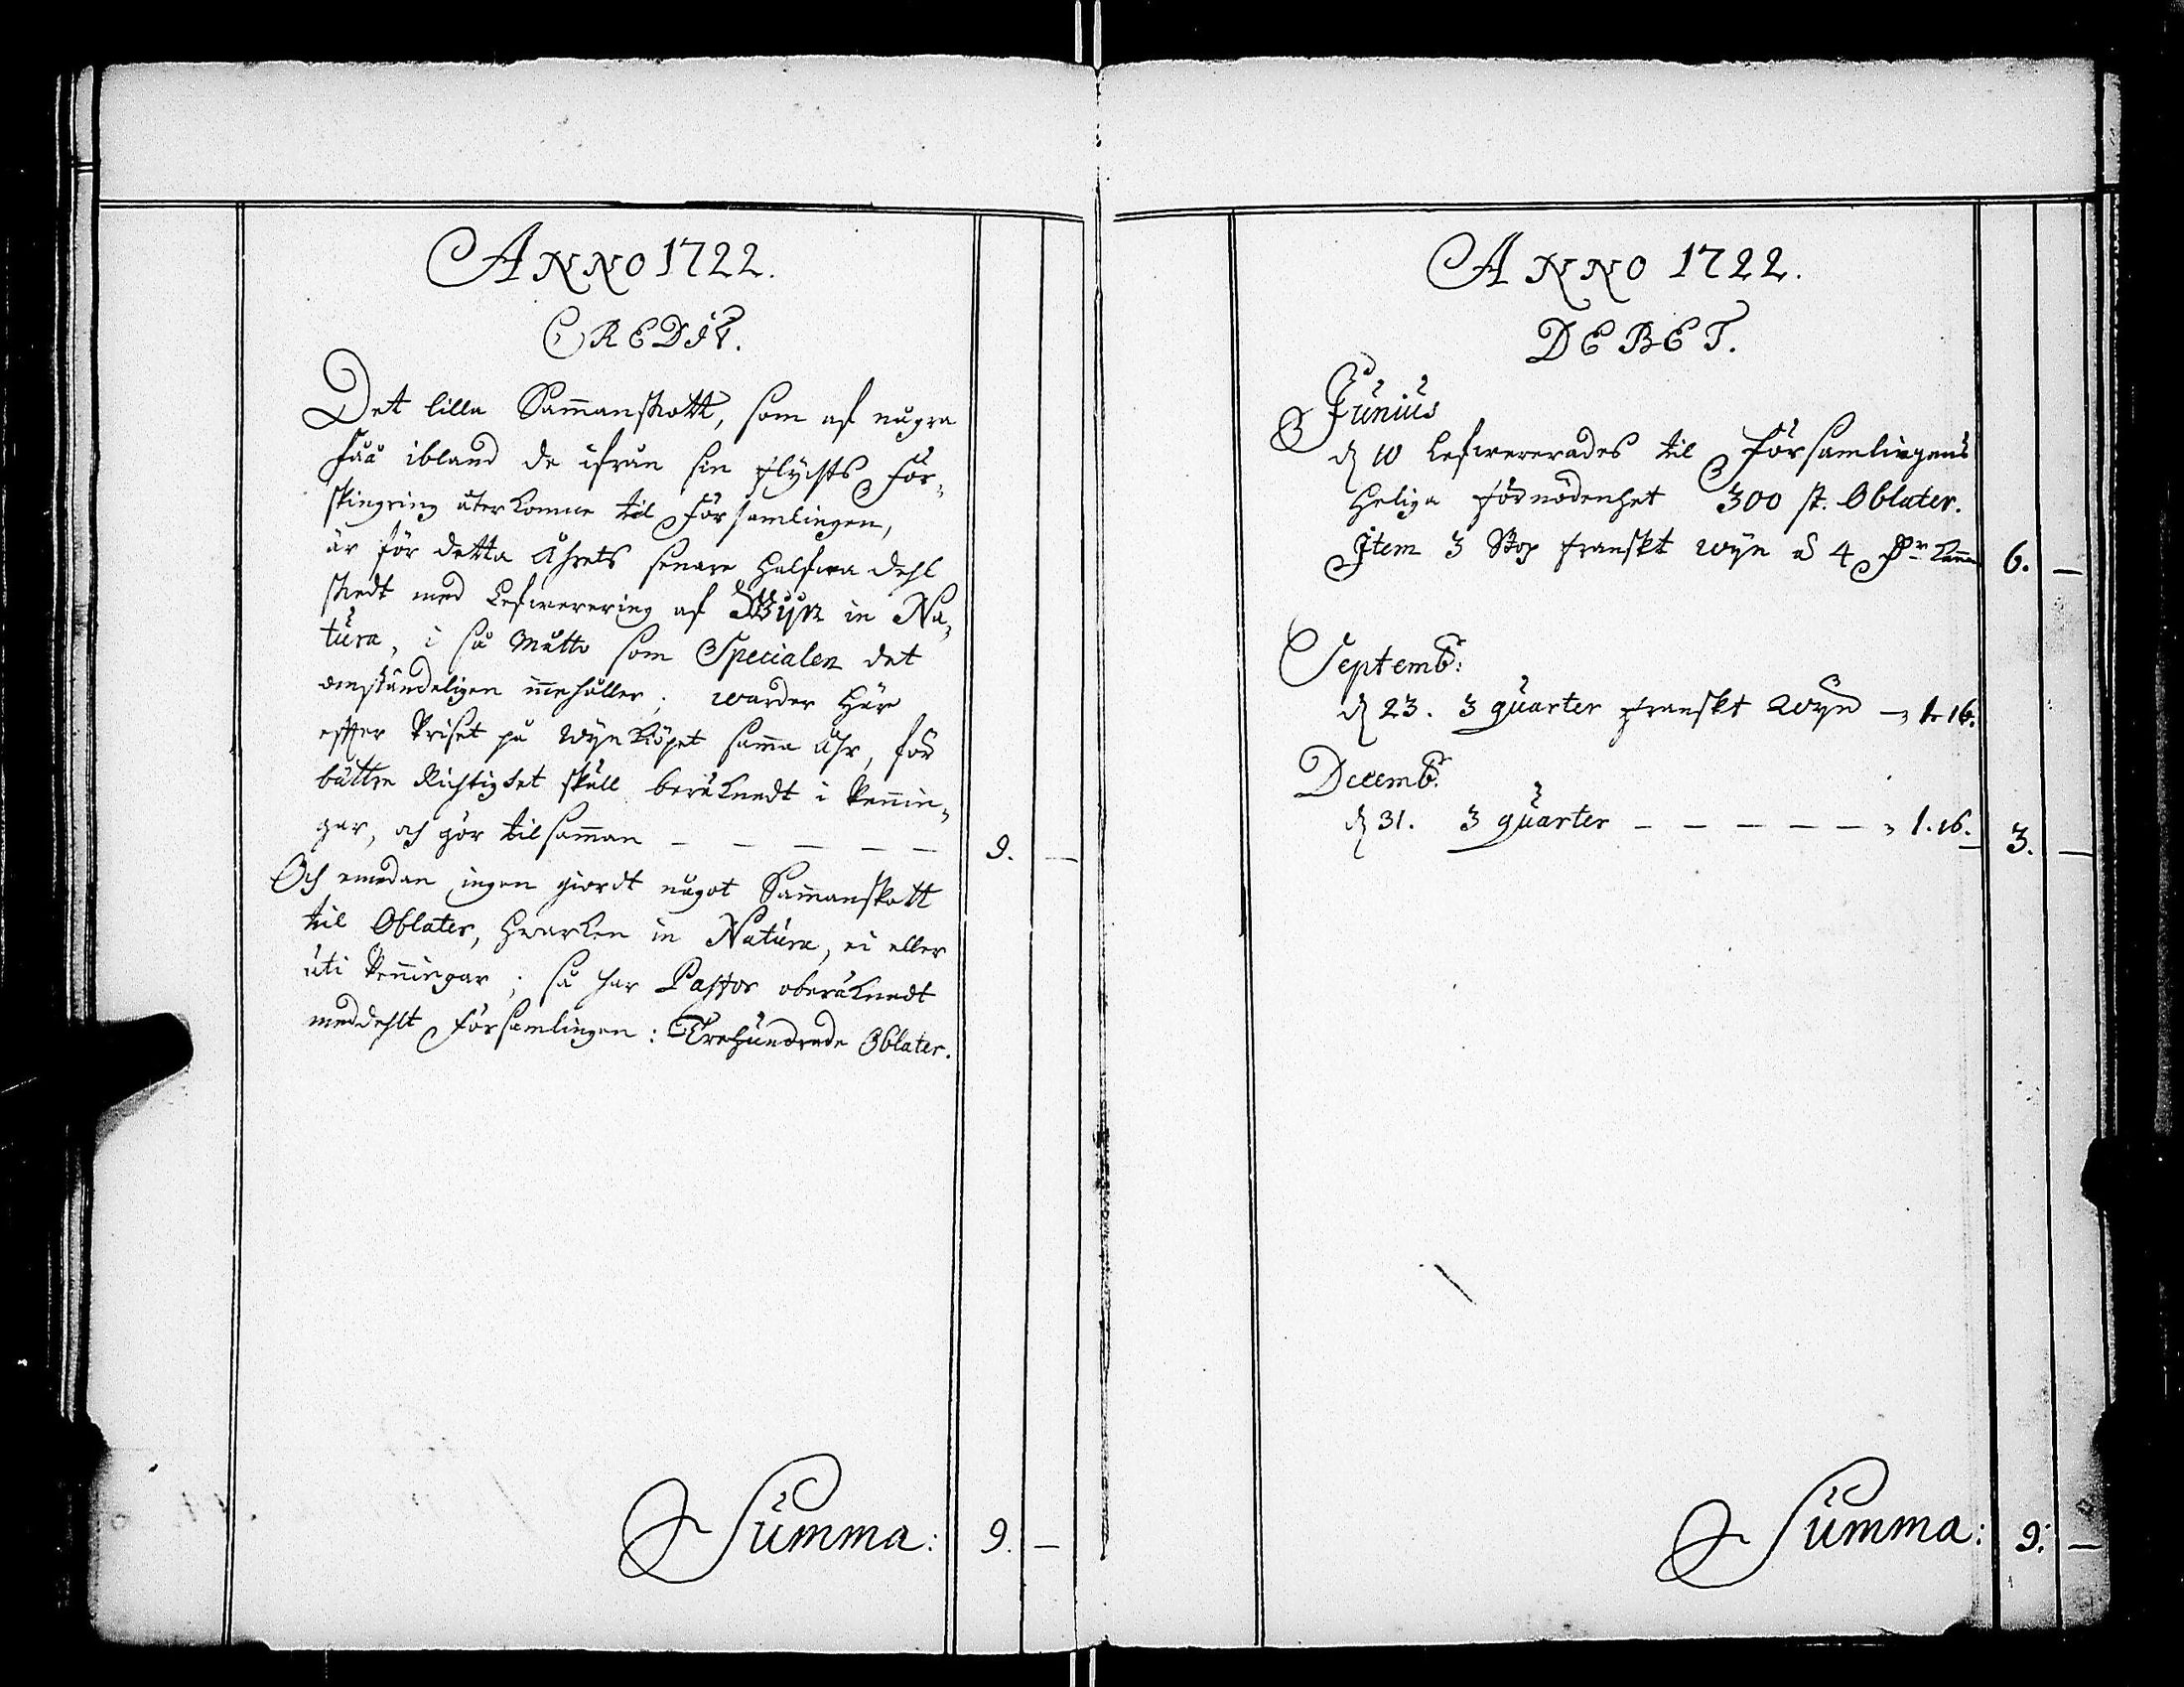 ANNO 1722.
CREDIT.
Det lilla Sam̄anskott, som af några
fåå ibland de ifrån sin flychts för-
skingring återkomne til församlingen,
är för detta Åhrets senare halfwa dehl
skedt med Lefwerering af Wijn in Na-
tura, i så måtto som Specialen det
omständeligen innehåller; warder här
efter Priset på Wynköpet sam̄a åhr, för
bättre Richtighet skull beräknadt i Pennin-
gar, och gör tilsam̄an — — — — — 9. —
Och emedan ingen giordt något Sam̄anskott
til Oblater, hwarken in Natura, ei eller
uti Pen̄ingar; så har Pastor oberäknadt
meddehlt församlingen: Trehundrade Oblater.
Summa: 9. —
ANNO 1722.
DEBET.
Junius
d 10 Lefwererades til församlingens
Heliga förnödenhet 300 st. Oblater.
Item 3 Stop franskt wyn a 4 6. —
Septembr:
d 23. 3 quarter franskt wyn — 1.16.
Decembr.
d 31. 3 quarter — — — — — 1.16. 3. —
Summa: 9. —